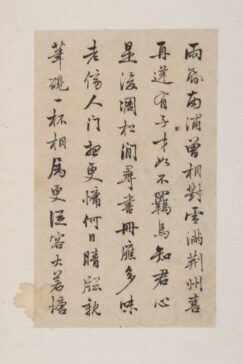 雨昏南浦曾相對雪滿荊州喜
再逢有子才如不羈馬知君心
是後凋松閒尋書冊應多味
老傍人門更慵何日晴軒觀
筆硯一杯相屬更從容大若塘